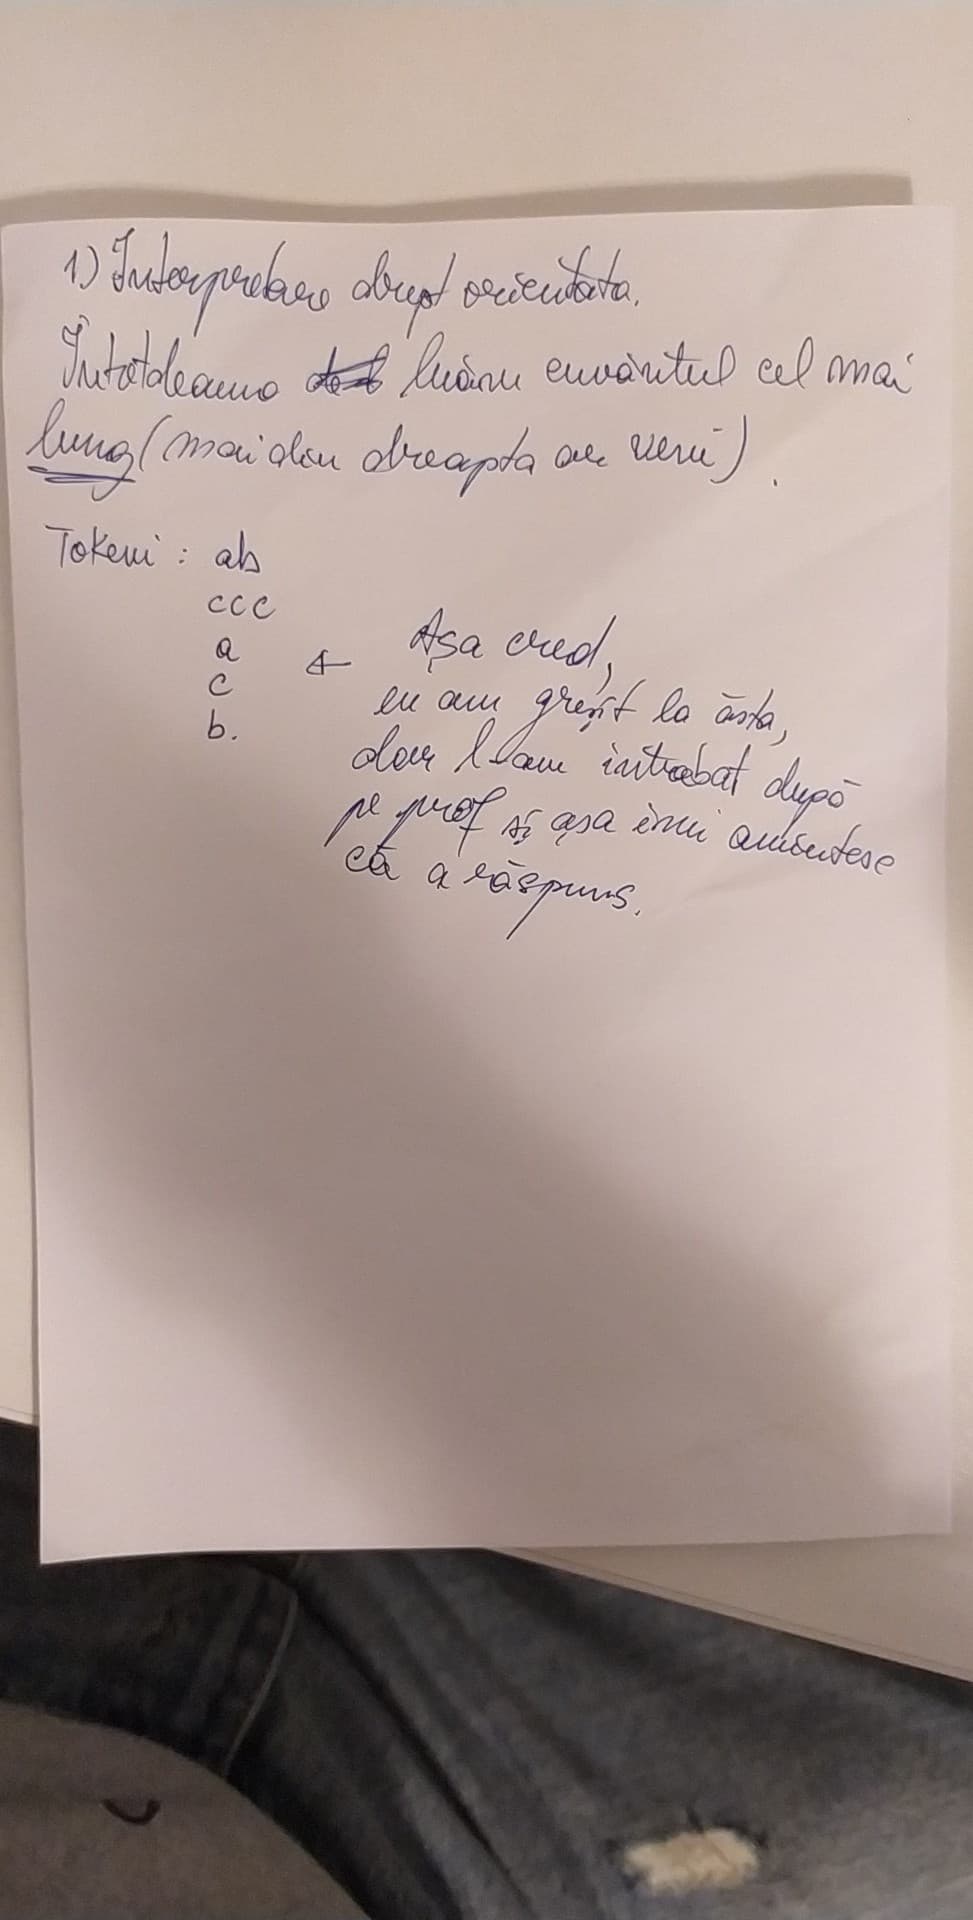 1) Interpretare drept orientata.
Întotdeauna luăm cuvântul cel mai
lung (mai din dreapta al veni).
Tokeni : ab
ccc
a
c
b.
← Așa cred,
eu am greșit la ăsta,
dar l-am întrebat după
pe prof și așa îmi amintesc
că a răspuns.